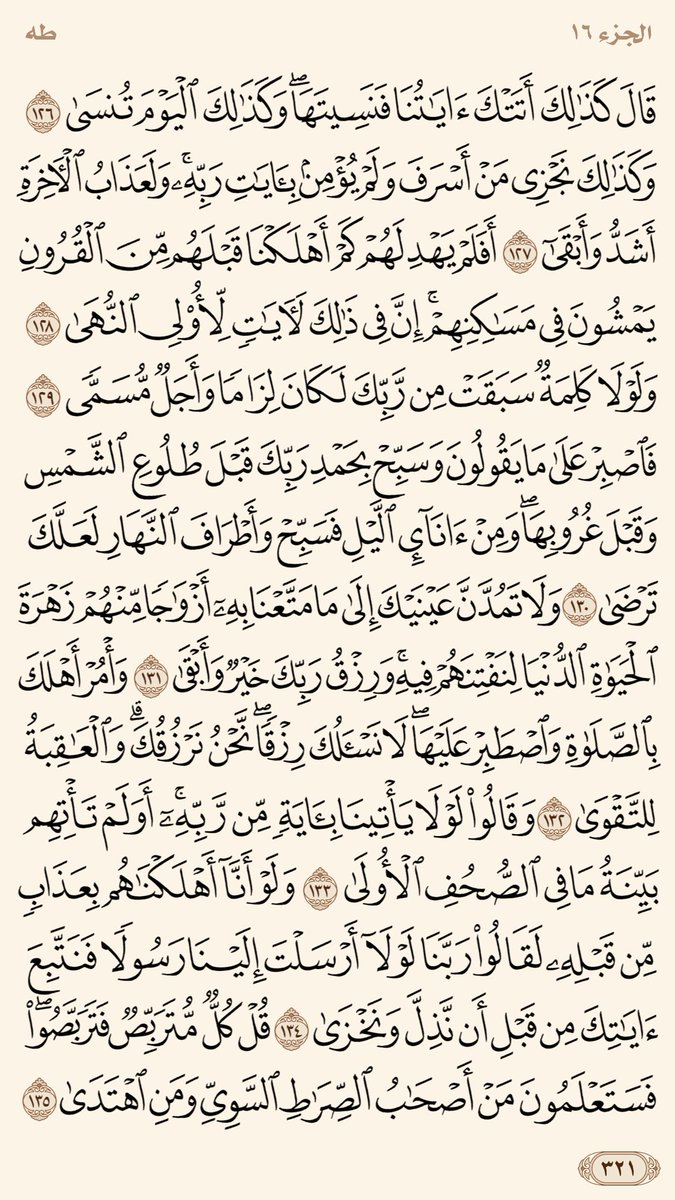 الجزء ١٦
طه
قَالَ كَذَٰلِكَ أَتَتْكَ ءَايَـٰتُنَا فَنَسِيتَهَا ۖ وَكَذَٰلِكَ ٱلْيَوْمَ تُنسَىٰ ١٢٦
وَكَذَٰلِكَ نَجْزِى مَنْ أَسْرَفَ وَلَمْ يُؤْمِنۢ بِـَٔايَـٰتِ رَبِّهِۦ ۚ وَلَعَذَابُ ٱلْـَٔاخِرَةِ
أَشَدُّ وَأَبْقَىٰٓ ١٢٧ أَفَلَمْ يَهْدِ لَهُمْ كَمْ أَهْلَكْنَا قَبْلَهُم مِّنَ ٱلْقُرُونِ
يَمْشُونَ فِى مَسَـٰكِنِهِمْ ۗ إِنَّ فِى ذَٰلِكَ لَـَٔايَـٰتٍ لِّأُو۟لِى ٱلنُّهَىٰ ١٢٨
وَلَوْلَا كَلِمَةٌ سَبَقَتْ مِن رَّبِّكَ لَكَانَ لِزَامًا وَأَجَلٌ مُّسَمًّى ١٢٩
فَٱصْبِرْ عَلَىٰ مَا يَقُولُونَ وَسَبِّحْ بِحَمْدِ رَبِّكَ قَبْلَ طُلُوعِ ٱلشَّمْسِ
وَقَبْلَ غُرُوبِهَا ۖ وَمِنْ ءَانَآئِ ٱلَّيْلِ فَسَبِّحْ وَأَطْرَافَ ٱلنَّهَارِ لَعَلَّكَ
تَرْضَىٰ ١٣٠ وَلَا تَمُدَّنَّ عَيْنَيْكَ إِلَىٰ مَا مَتَّعْنَا بِهِۦٓ أَزْوَٰجًا مِّنْهُمْ زَهْرَةَ
ٱلْحَيَوٰةِ ٱلدُّنْيَا لِنَفْتِنَهُمْ فِيهِ ۚ وَرِزْقُ رَبِّكَ خَيْرٌ وَأَبْقَىٰ ١٣١ وَأْمُرْ أَهْلَكَ
بِٱلصَّلَوٰةِ وَٱصْطَبِرْ عَلَيْهَا ۖ لَا نَسْـَٔلُكَ رِزْقًا ۖ نَّحْنُ نَرْزُقُكَ ۗ وَٱلْعَـٰقِبَةُ
لِلتَّقْوَىٰ ١٣٢ وَقَالُوا۟ لَوْلَا يَأْتِينَا بِـَٔايَةٍ مِّن رَّبِّهِۦٓ ۚ أَوَلَمْ تَأْتِهِم
بَيِّنَةُ مَا فِى ٱلصُّحُفِ ٱلْأُولَىٰ ١٣٣ وَلَوْ أَنَّآ أَهْلَكْنَـٰهُم بِعَذَابٍ
مِّن قَبْلِهِۦ لَقَالُوا۟ رَبَّنَا لَوْلَآ أَرْسَلْتَ إِلَيْنَا رَسُولًا فَنَتَّبِعَ
ءَايَـٰتِكَ مِن قَبْلِ أَن نَّذِلَّ وَنَخْزَىٰ ١٣٤ قُلْ كُلٌّ مُّتَرَبِّصٌ فَتَرَبَّصُوا۟ ۖ
فَسَتَعْلَمُونَ مَنْ أَصْحَـٰبُ ٱلصِّرَٰطِ ٱلسَّوِىِّ وَمَنِ ٱهْتَدَىٰ ١٣٥
٣٢١